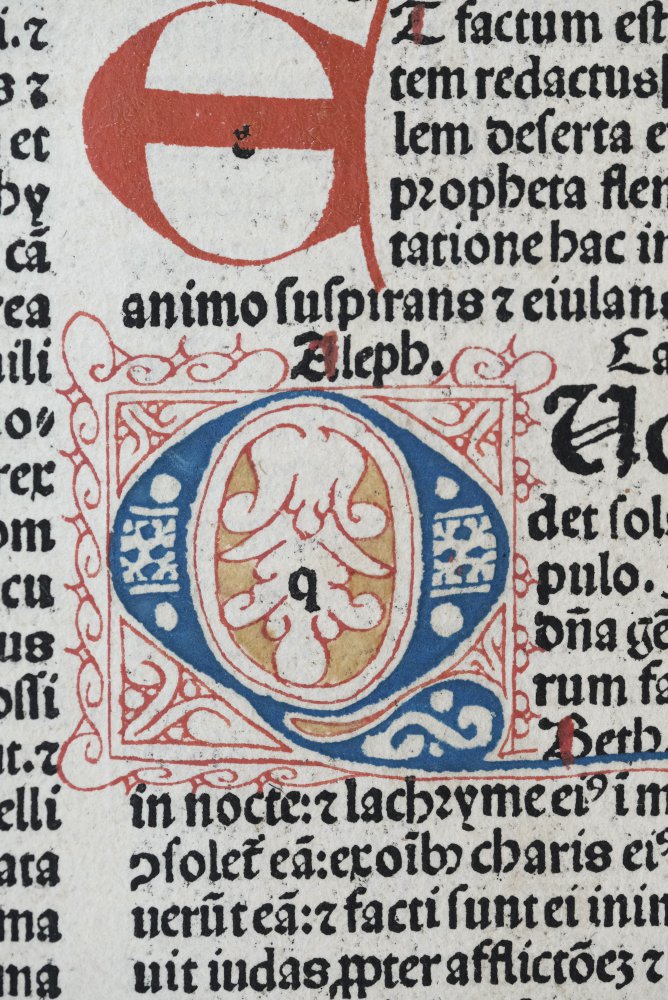 i.⁊
s ⁊
et
hy
cā
rea
ili
o⸗
rex
om
cu
us
oſſi
ut.⁊
elli
ata
ma
ma
E
e
Et factum eſt
tem redactus
lem deſerta e
propheta flen
tatione hac in
animo ſuſpirans ⁊ eiulans
Aleph.
La
Q
q
Uo
det ſol
pulo.
dña gē
rum fa
Beth.
in nocte: ⁊ lachryme eiꝰ ī m
ↄſolet᷑ eā: ex oībꝫ charis eiꝰ
uerūt eā: ⁊ facti ſunt ei inim
uit iudas ꝓpter afflictōeꝫ ⁊